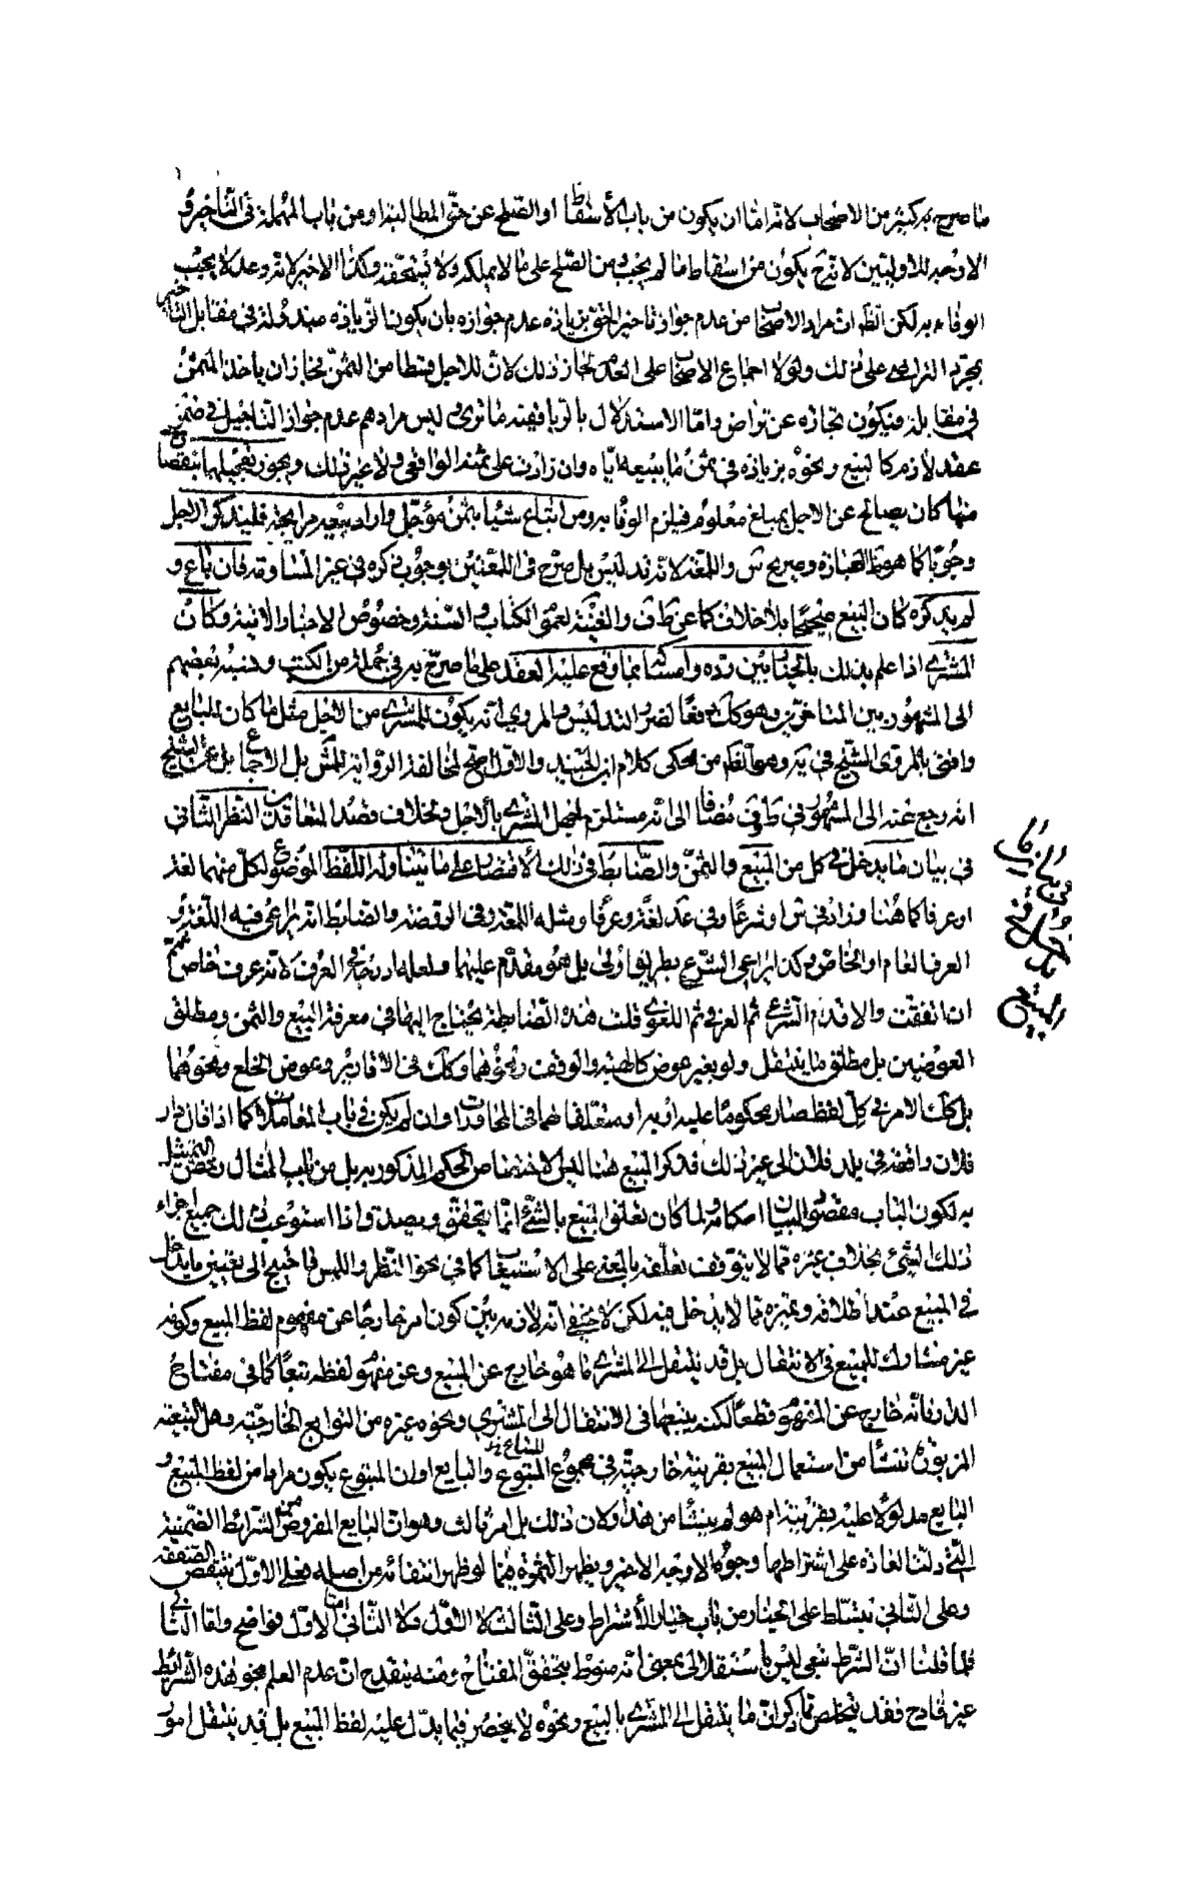 ما صرح به كثير من الاصحاب لانه اما ان يكون من باب الاسقاط او الصلح عن حق المطالبة او من باب المهملة في التاخير و
الاوجه للاوليين لانه ح يكون من اسقاط ما لم يجب ومن الصلح على ما لا يملكه ولا يستحقه وكذا الاخير لانه وعد لا يجب
الوفاء به لكن الظ ان مراد الاصحاب من عدم جواز تاخير الحق بزيادة عدم جوازه بان يكون الزيادة مبذولة في مقابل التاخير
بمجرد التراضي على ذلك ولولا اجماع الاصحاب على العدم لجاز ذلك لان للاجل قسطا من الثمن فجاز ان ياخذ الثمن
في مقابله فيكون تجارة عن تراض واما الاستدلال بالربا ففيه ما ترى وليس مرادهم عدم جواز التاجيل في ضمن
عقد لازم كالبيع ونحوه بزيادة في ثمن ما يبيعه اياه وان زادت على ثمنه الواقعي ولا غير ذلك ويجوز تعجيلها بنقصان
منها كان يصالح عن الاجل بمبلغ معلوم فيلزم الوفا به ومن ابتاع شيئا بثمن مؤجل واراد بيعه مرابحة فليذكر الاجل
وجوبا كما هو ظ العبارة وصريح ش واللمعة لانه تدليس بل صرح في اللمعتين بوجوب ذكره في غير المساومة فان باع و
لم يذكره كان البيع صحيحا بلا خلاف كما عن ط ف والغنية لعموم الكتاب والسنة وخصوص الاخبار الاتية وكان
المشتري اذا علم بذلك بالخيار بين رده وامساكه بما وقع عليه العقد على ما صرح به في جملة من الكتب ونسبه بعضهم
الى المشهور بين المتاخرين وهو كك دفعا لضرر التدليس والمروي انه يكون للمشتري من الاجل مثل ما كان للبايع
وافتى بالمروي الشيخ في يه وهو المحكي كلام ابن الجنيد والاول اصح لمخالفة الرواية للاش بل الاجماع بل عن الشيخ
انه رجع عنه الى المشهور في ط ف مضافا الى انه مستلزم لجهل المشتري بالاجل وبخلاف قصد المتعاقدين النظر الثاني
في بيان ما يدخل في كل من المبيع والثمن والضابط في ذلك الاقتصار على ما يتناوله اللفظ الموضوع لكل منهما لغة
او عرفا كما هنا وزاد في ش او شرعا وفي عد لغة وعرفا ومثله اللمعة وفي الروضة والضابط انه يراعى فيه اللغة و
العرف العام او الخاص وكذا يراعى الشرع بطريق اولى بل هو مقدم عليهما ولعله ادرجه في العرف لانه عرف خاص ثم
ان اتفقت والا قدم الشرعي ثم العرفي ثم اللغوي قلت هذه الضابطة يحتاج اليها في معرفة المبيع والثمن ومطلق
العوضين بل مطلق ما ينتقل ولو بغير عوض كالهبة والوقف ونحوهما وكك في الاقارير وعوض الخلع ونحوهما
بل كك الامر في كل لفظ صار محكوما عليه او به او متعلقا لهما في المحاورات وان لم يكن في باب المعاملات كما اذا قال دار
فلان واقعة في بلد فلان الى غير ذلك فذكر المبيع هنا ليس لاختصاص الحكم المذكور به بل من باب المثال وخص التمثيل
به لكون الباب مقصورا لبيان احكامه ولما كان تعلق البيع بالشيء انما يتحقق ويصدق اذا استوعب ذلك جميع اجزاء
ذلك الشيء بخلاف غيره مما لا يتوقف تعلقه بالمعنى على الاستيعاب كما في نحو النظر واللمس فاحتيج الى تعيين ما يدخل
في المبيع عند اطلاقه وتميزه مما لا يدخل فيه لكن لا يخفى انه لازمه بين كون امر خارجا عن مفهوم لفظ المبيع وكونه
غير مشارك للمبيع في الانتقال بل قد ينتقل الى المشتري ما هو خارج عن المبيع وعن مفهوم لفظه تبعا كما في مفتاح
الدار فانه خارج عن المفهوم قطعا لكنه يتبعها في الانتقال الى المشتري ونحوه غيره من التوابع الخارجية وهل التبعية
المزبورة تنشأ من استعمال المبيع بقرينة خارجية في مجموع المتبوع والتابع او ان المتبوع يكون مرادا من لفظ المبيع و
التابع مدلولا عليه بقرينة ام هو لم ينشأ من هذا ولا من ذلك بل امر ثالث وهو ان التابع المفروض من الشرائط الضمنية
التي دلت العادة على اشتراطها وجوه الاوجه الاخير ويظهر الثمرة فيما لو ظهر انتفائه من اصله فعلى الاول تتبعض الصفقة
وعلى الثاني يتسلط على الخيار من باب خيار الاشتراط وعلى الثالث لا الاول ولا الثاني اما الاول فواضح واما الثاني
فلما قلنا ان الشرط تبعي ليس باستقلالي بمعنى انه منوط بتحقق المفتاح ومنه ينقدح ان عدم العلم بنحو هذه الشرائط
غير قادح فقد يتخلص مما ذكر ان ما ينتقل الى المشتري بالبيع ونحوه لا ينحصر فيما يدل عليه لفظ المبيع بل قد ينتقل امور
في بيان ما
يدخل في
المبيع